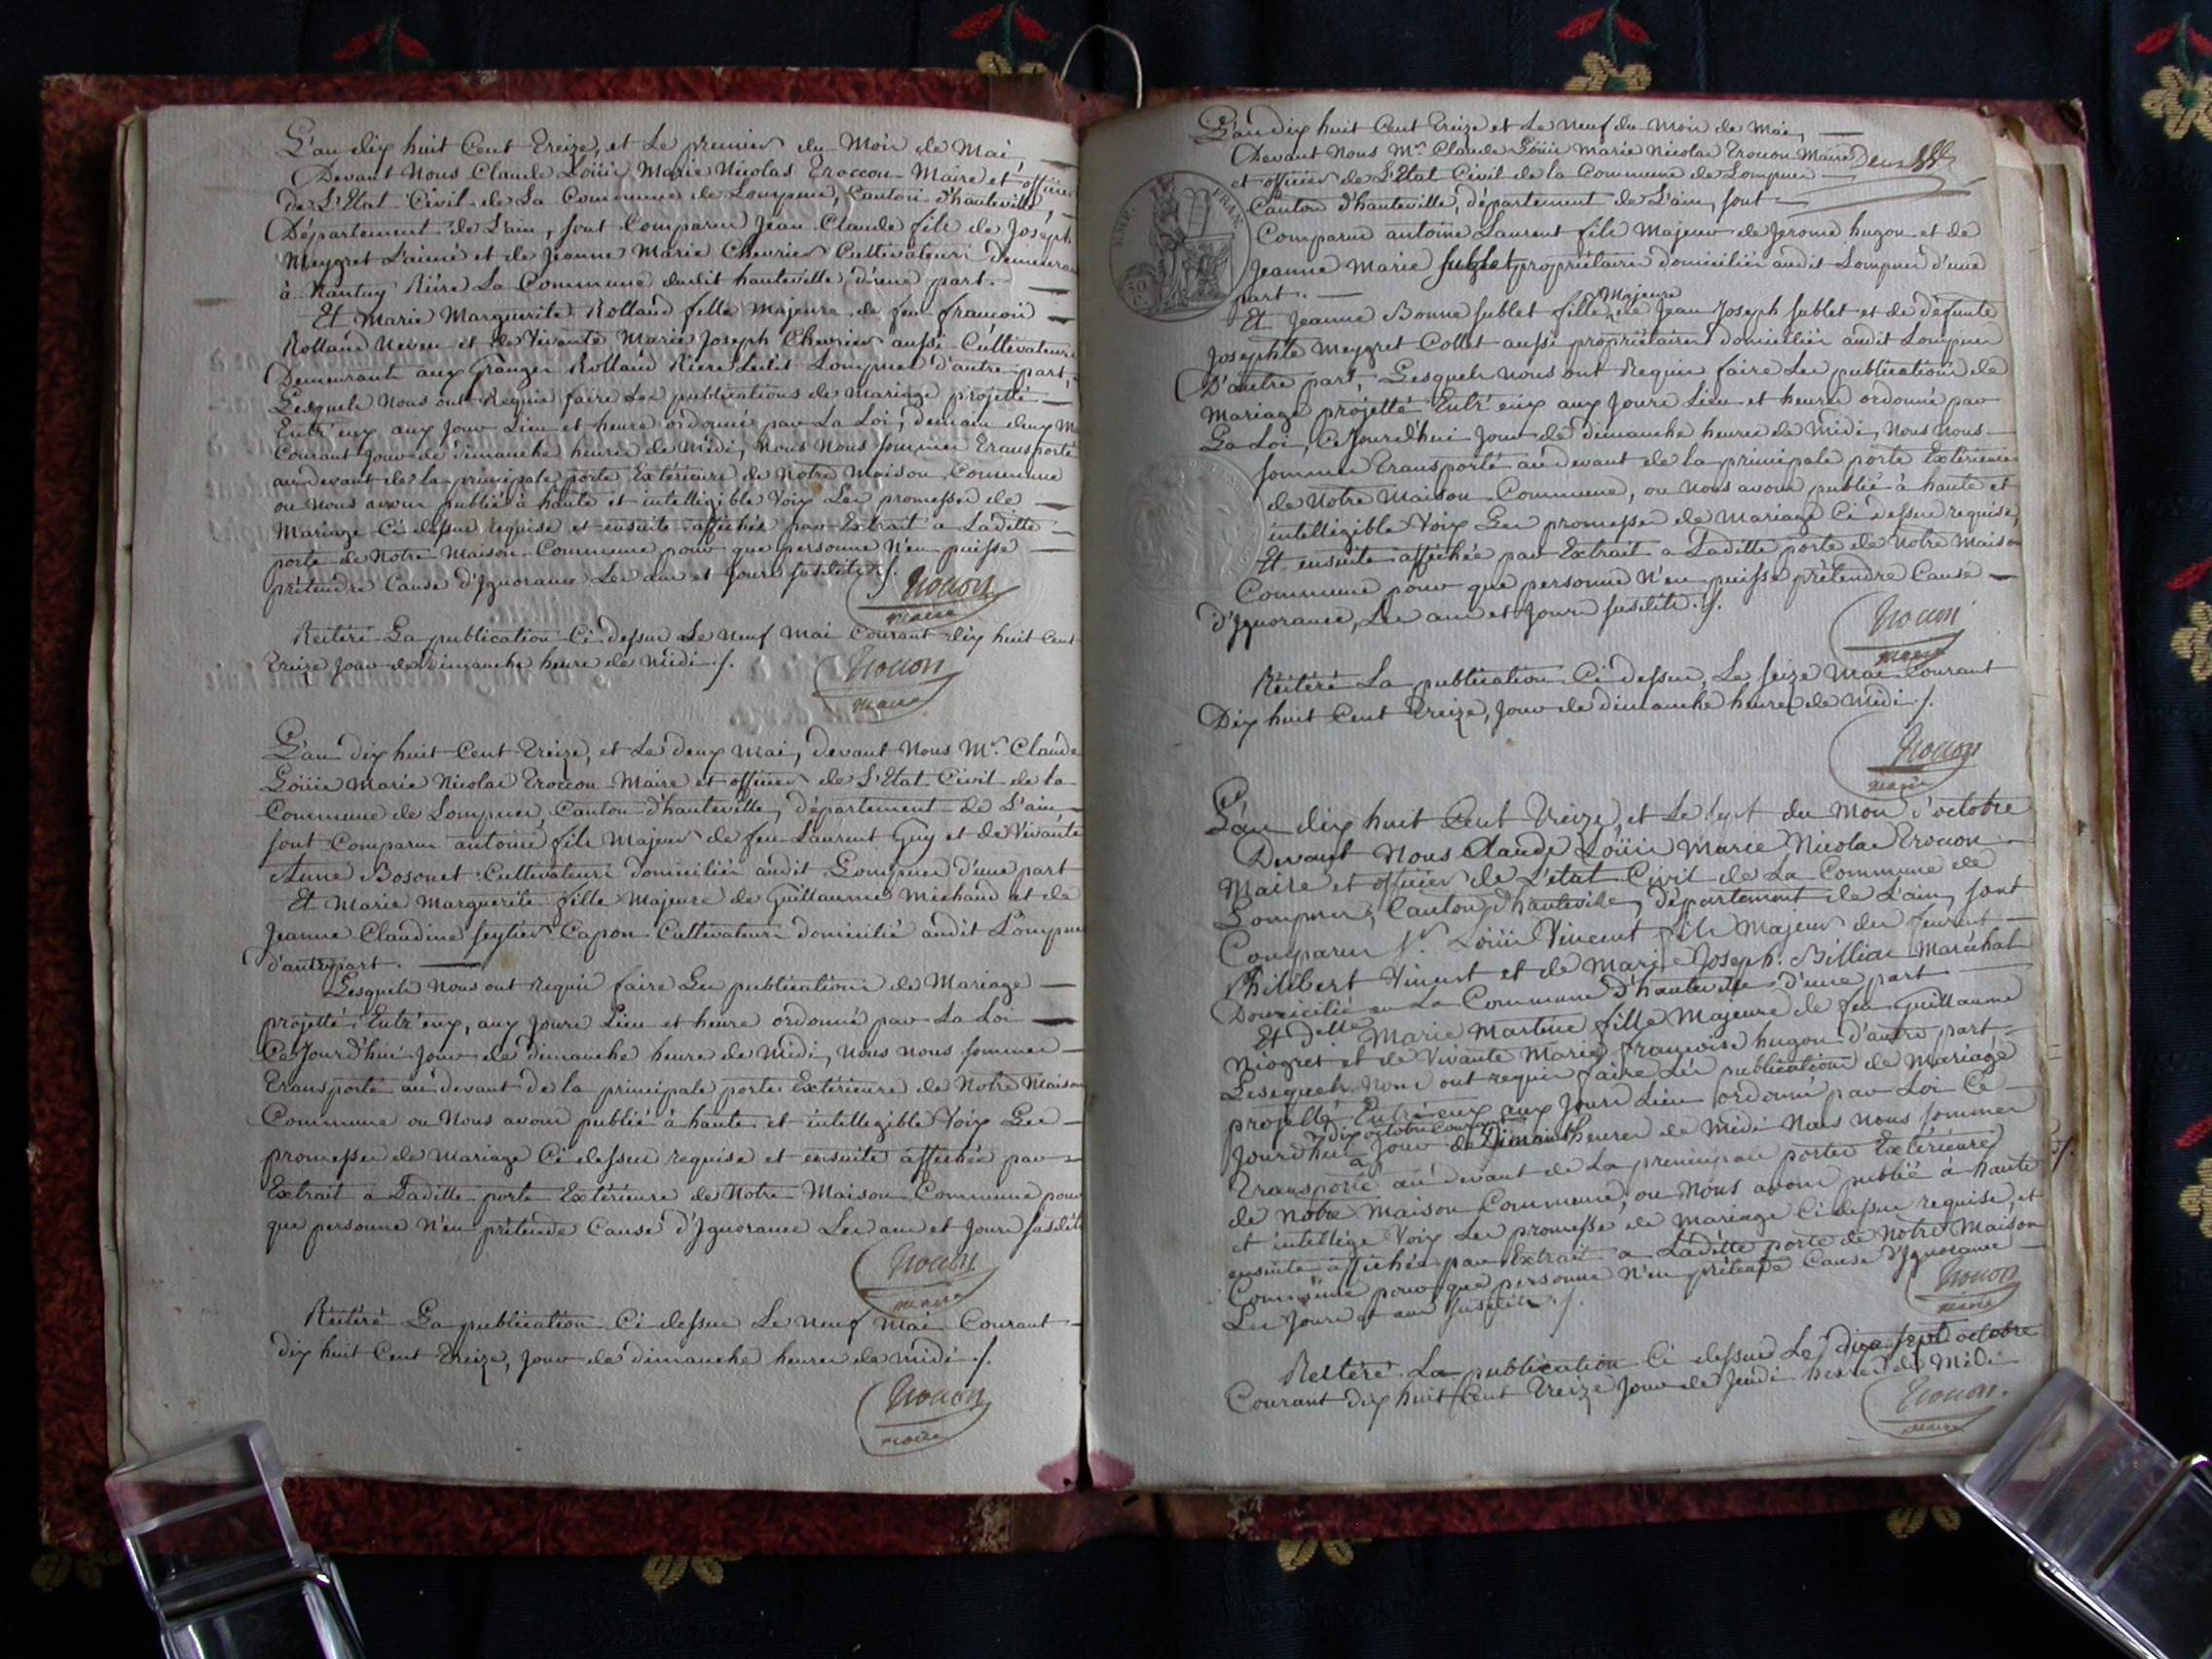 L'an dix huit Cent treize, et Le premier du Mois de Mai,
Devant Nous Claude Loüis Marie Nicolas Troccon Maire et officier
de L'Etat Civil de La Commune de Lompnes, Canton d'hauteville,
Département de L'ain, sont Comparus Jean Claude fils de Joseph
Meygret L'ainé et de Jeanne Marie Chevrier Cultivateurs demeurant
à Nantuy Rière La Commune dudit hauteville d'une part.
Et Marie Marguerite Rolland fille Majeure de feu francois
Rolland Neveu et de Vivante Marie Joseph Chevrier aussi Cultivateurs
Demeurants aux Granges Rolland Rière Ledit Lompnes d'autre part,
Lesquels Nous ont Requis faire Les publications de Mariage projetté
Entr'eux aux Jour Lieu et heure ordonné par La Loi, demain deux Mai
Courant Jour de dimanche heures de Midi, Nous Nous sommes transporté
au devant de La principale porte Extérieure de Notre Maison Commune
ou Nous avons publié à haute et intelligible Voix Les promesses de
Mariage Ci dessus requise et ensuite affichée par Extrait a Laditte
porte de Notre Maison Commune pour que personne N'en puisse
prétendre Cause d'Ignorance Les an et Jours susdits ./.
Troccon
maire
Réitéré La publication Ci dessus Le Neuf Mai Courant dix huit Cent
treize Jour de Dimanche heure de Midi ./.
Troccon
maire
L'an dix huit Cent treize, et Le deux Mai, devant Nous Mr. Claude
Loüis Marie Nicolas Troccon Maire et officier de L'Etat Civil de la
Commune de Lompnes, Canton d'hauteville, département de L'ain,
sont Comparus antoine fils Majeur de feu Laurent Guy et de Vivante
Anne Bosonet Cultivateurs domiciliés audit Lompnes d'une part
Et Marie Marguerite fille Majeure de Guillaume Michaud et de
Jeanne Claudine seytier Capon Cultivateurs domicilié audit Lompnes
d'autre part.
Lesquels Nous ont requis faire Les publications de Mariage
projetté Entr'eux, aux Jours Lieu et heure ordonné par La Loi
Ce Jourd'hui Jour de dimanche heures de Midi, Nous nous sommes
transporté au devant de la principale porte Extérieure de Notre Maison
Commune ou Nous avons publié à haute et intelligible Voix Les
promesses de Mariage Ci dessus requise et ensuite affichée par
Extrait a Laditte porte Extérieure de Notre Maison Commune pour
que personne N'en prétende Cause d'Ignorance Les an et Jours susdits
Troccon
maire
Réitéré La publication Ci dessus Le Neuf Mai Courant
dix huit Cent treize, Jour de dimanche heures de midi ./.
Troccon
maire
L'an dix huit Cent treize et Le Neuf du Mois de Mai,
Devant Nous Mr. Claude Loüis Marie Nicolas Troccon Maire
et officier de L'Etat Civil de la Commune de Lompnes
Canton d'hauteville, département de L'ain, sont
EMP. FRAN.
50 C.
Comparus antoine Laurent fils Majeur de Jerome hugon et de
Jeanne Marie sublet propriétaires domiciliés audit Lompnes d'une
part.
Majeure
Et Jeanne Bonne sublet fille de Jean Joseph sublet et de défunte
Josephte Meygret Collet aussi propriétaires domiciliés audit Lompnes
D'autre part, Lesquels Nous ont Requis faire Les publications de
Mariage projetté Entr'eux aux Jours Lieu et heures ordonné par
La Loi, Ce Jourd'hui Jour de dimanche heures de Midi, Nous nous
sommes transporté au devant de la principale porte Extérieure
de Notre Maison Commune, ou Nous avons publié à haute et
intelligible Voix Les promesse de Mariage Ci dessus requise,
Et ensuite affichée par Extrait a Laditte porte de Notre Maison
Commune pour que personne N'en puisse prétendre Cause
d'Ignorance, Les an et Jours susdits ./.
Troccon
maire
Réitéré La publication Ci dessus, Le seize Mai Courant
Dix huit Cent treize, Jour de dimanche heures de Midi ./.
Troccon
maire
L'an dix huit Cent treize, et Le sept du Mois d'octobre
Devant Nous Claude Loüis Marie Nicolas Troccon
Maire et officier de L'état Civil de La Commune de
Lompnes, Canton d'hauteville, département de L'ain, sont
Comparus Sr. Loüis Vincent fils Majeur de
Philibert Vincent et de Marie Joseph Billiat Maréchal
Domicilié en La Commune d'hauteville d'une part
Et delle Marie Martine fille Majeure de feu Guillaume
Niogret et de Vivante Marie françoise hugon d'autre part
Lesequels Nous ont requis faire Les publications de Mariage
projetté Entr'eux aux Jours Lieu ordonné par Loi Ce
dix octobre Courant
Jourd'hui Jour de Dimanche heures de Midi Nous Nous sommes
transporté au devant de La principale porte Extérieure
de Notre Maison Commune, ou Nous avons publié à haute
et intellige Voix Les promesse de Mariage Ci dessus requise, et
ensuite affichée par Extrait a Laditte porte de Notre Maison
Commune pour que personne N'en prétende Cause d'Ignorance
Les Jours et an susdits ./.
Troccon
maire
Reitéré La publication Ci dessus Le dix sept octobre
Courant dix huit Cent treize Jour de Jeudi heures de Midi
Troccon.
maire